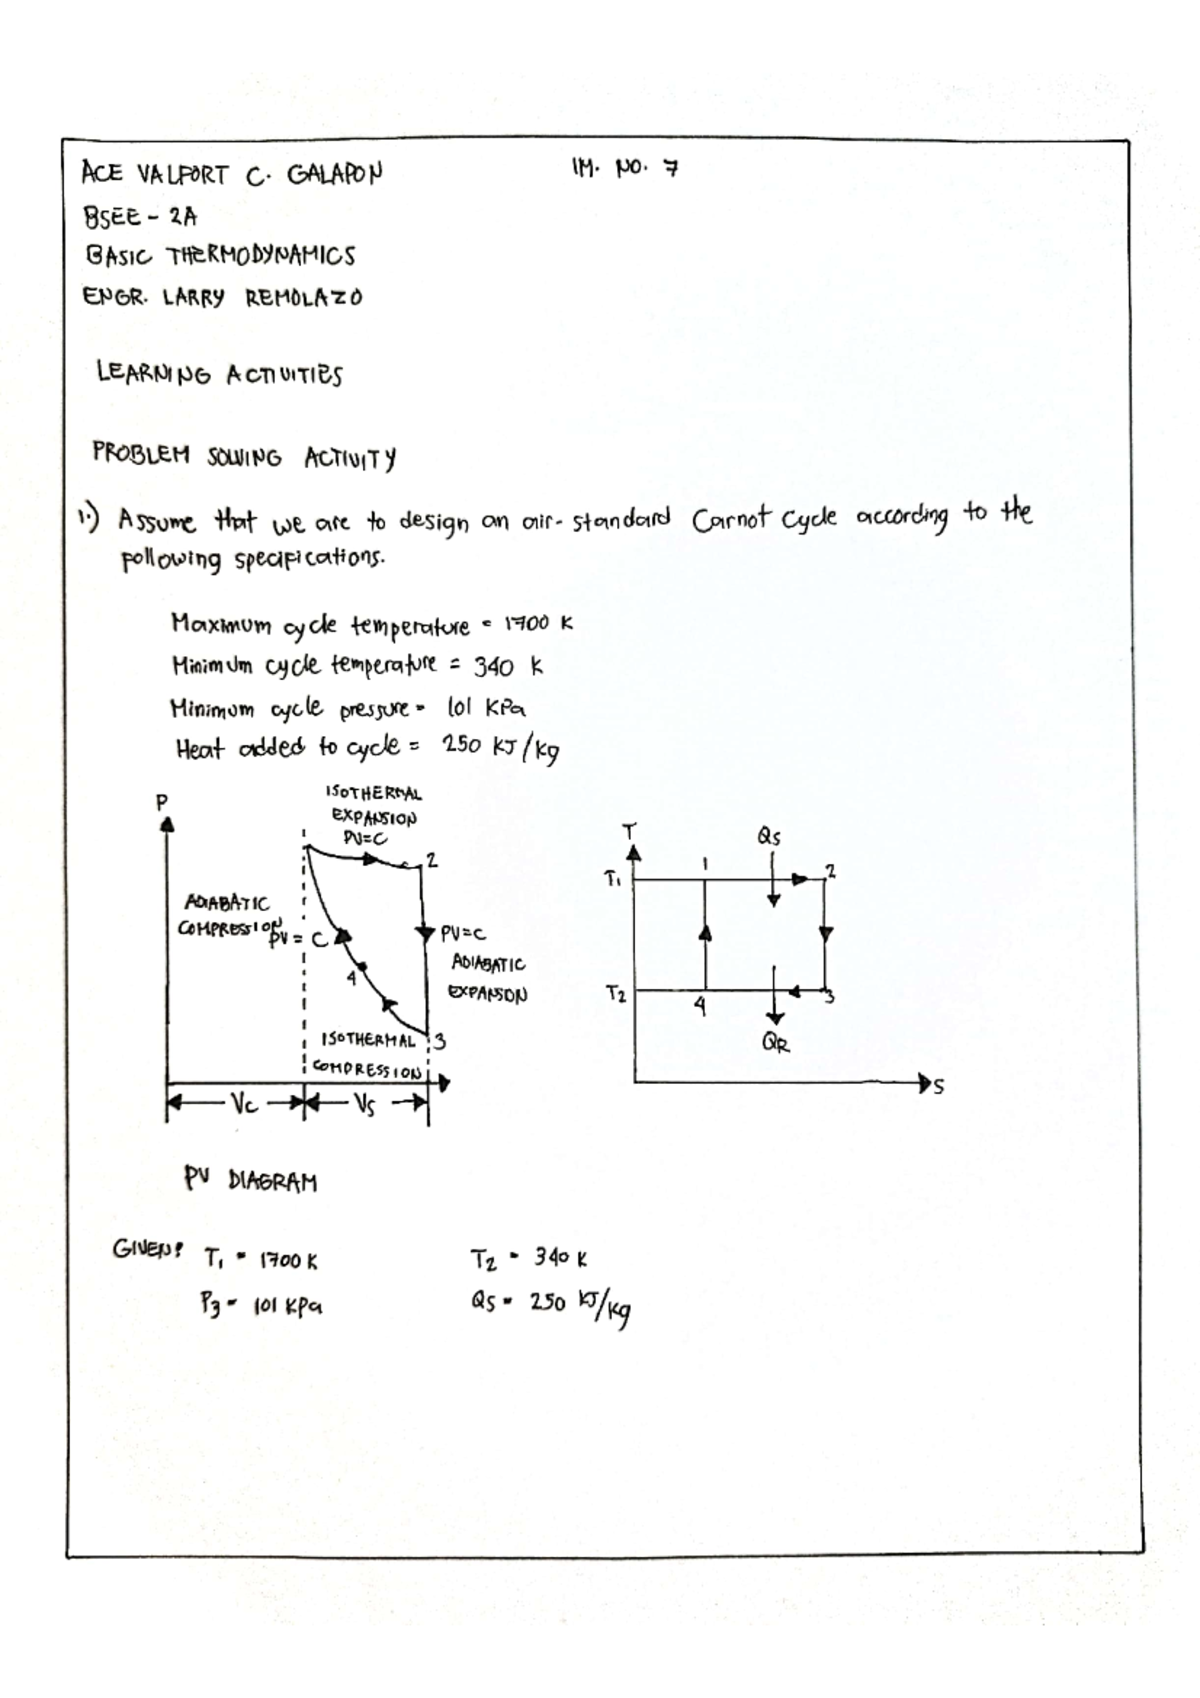 ACE VALFORT C. GALAPON
IM. NO. 7
BSEE - 2A
BASIC THERMODYNAMICS
ENGR. LARRY REMOLAZO
LEARNING ACTIVITIES
PROBLEM SOLVING ACTIVITY
1.) Assume that we are to design an air-standard Carnot Cycle according to the
following specifications.
Maximum cycle temperature = 1700 K
Minimum cycle temperature = 340 K
Minimum cycle pressure = 101 KPa
Heat added to cycle = 250 KJ/Kg
P
ISOTHERMAL
EXPANSION
PV=C
2
ADIABATIC
COMPRESSION
PV = C
4
PV=C
ADIABATIC
EXPANSON
ISOTHERMAL
COMPRESSION
3
Vc
Vs
PV DIAGRAM
T
Qs
T1
1
2
T2
4
3
QR
S
GIVEN: T1 = 1700 K
T2 = 340 K
P3 = 101 KPa
Qs = 250 KJ/Kg